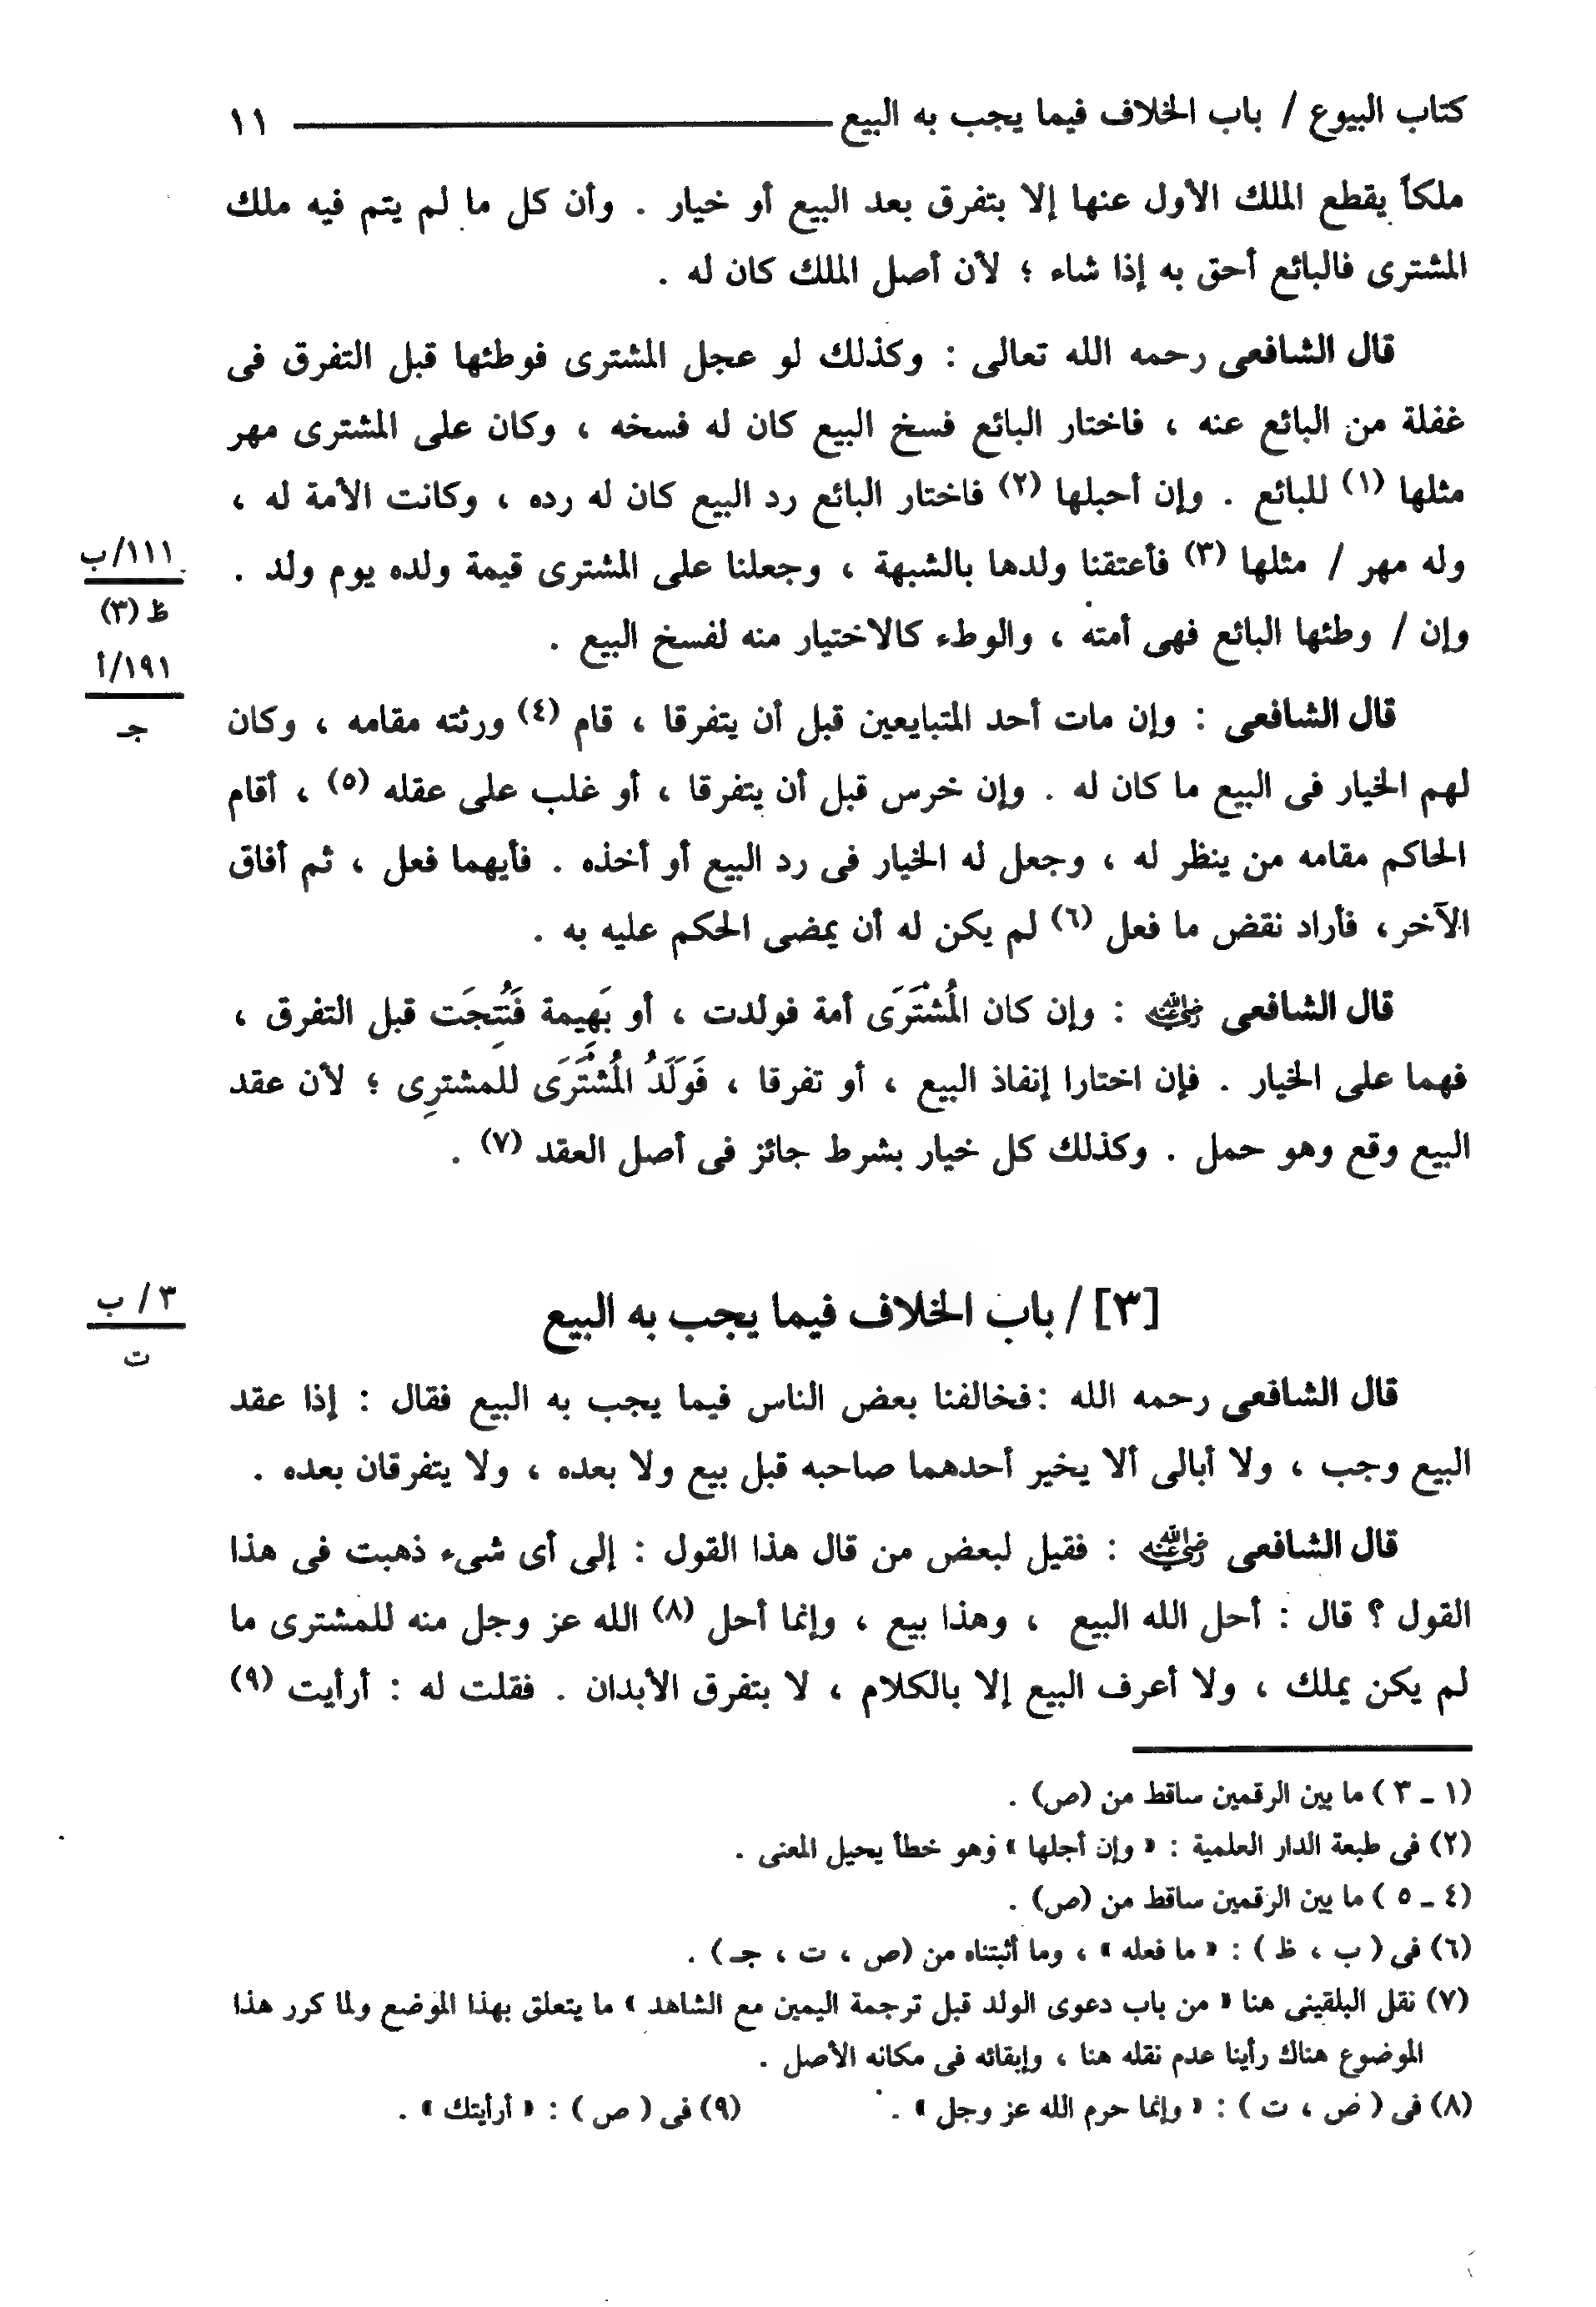 كتاب البيوع / باب الخلاف فيما يجب به البيع ١١
ملكاً يقطع الملك الأول عنها إلا بتفرق بعد البيع أو خيار . وأن كل ما لم يتم فيه ملك
المشترى فالبائع أحق به إذا شاء ؛ لأن أصل الملك كان له .
قال الشافعى رحمه الله تعالى : وكذلك لو عجل المشترى فوطئها قبل التفرق فى
غفلة من البائع عنه ، فاختار البائع فسخ البيع كان له فسخه ، وكان على المشترى مهر
مثلها (١) للبائع . وإن أحبلها (٢) فاختار البائع رد البيع كان له رده ، وكانت الأمة له ،
وله مهر / مثلها (٣) فأعتقنا ولدها بالشبهة ، وجعلنا على المشترى قيمة ولده يوم ولد .
١١١/ب
ظ (٣)
وإن / وطئها البائع فهى أمته ، والوطء كالاختيار منه لفسخ البيع .
١٩١/أ
جـ
قال الشافعى : وإن مات أحد المتبايعين قبل أن يتفرقا ، قام (٤) ورثته مقامه ، وكان
لهم الخيار فى البيع ما كان له . وإن خرس قبل أن يتفرقا ، أو غلب على عقله (٥) ، أقام
الحاكم مقامه من ينظر له ، وجعل له الخيار فى رد البيع أو أخذه . فأيهما فعل ، ثم أفاق
الآخر، فأراد نقض ما فعل (٦) لم يكن له أن يمضى الحكم عليه به .
قال الشافعى رضي الله عنه : وإن كان المُشْتَرَى أمة فولدت ، أو بَهِيمة فَنُتِجَت قبل التفرق ،
فهما على الخيار . فإن اختارا إنفاذ البيع ، أو تفرقا ، فَوَلَدُ المُشْتَرَى للمشترِى ؛ لأن عقد
البيع وقع وهو حمل . وكذلك كل خيار بشرط جائز فى أصل العقد (٧) .
[٣] / باب الخلاف فيما يجب به البيع
٣ / ب
ت
قال الشافعى رحمه الله :فخالفنا بعض الناس فيما يجب به البيع فقال : إذا عقد
البيع وجب ، ولا أبالى ألا يخير أحدهما صاحبه قبل بيع ولا بعده ، ولا يتفرقان بعده .
قال الشافعى رضي الله عنه : فقيل لبعض من قال هذا القول : إلى أى شىء ذهبت فى هذا
القول ؟ قال : أحل الله البيع ، وهذا بيع ، وإنما أحل (٨) الله عز وجل منه للمشترى ما
لم يكن يملك ، ولا أعرف البيع إلا بالكلام ، لا بتفرق الأبدان . فقلت له : أرأيت (٩)
(١ ـ ٣ ) ما بين الرقمين ساقط من (ص) .
(٢) فى طبعة الدار العلمية : « وإن أجلها » وهو خطأ يحيل المعنى .
(٤ ـ ٥ ) ما بين الرقمين ساقط من (ص) .
(٦) فى ( ب ، ظ ) : « ما فعله » ، وما أثبتناه من (ص ، ت ، جـ ) .
(٧) نقل البلقينى هنا « من باب دعوى الولد قبل ترجمة اليمين مع الشاهد » ما يتعلق بهذا الموضع ولما كرر هذا
الموضوع هناك رأينا عدم نقله هنا ، وإبقائه فى مكانه الأصل .
(٨) فى ( ص ، ت ) : « وإنما حرم الله عز وجل » . (٩) فى ( ص ) : « أرأيتك » .